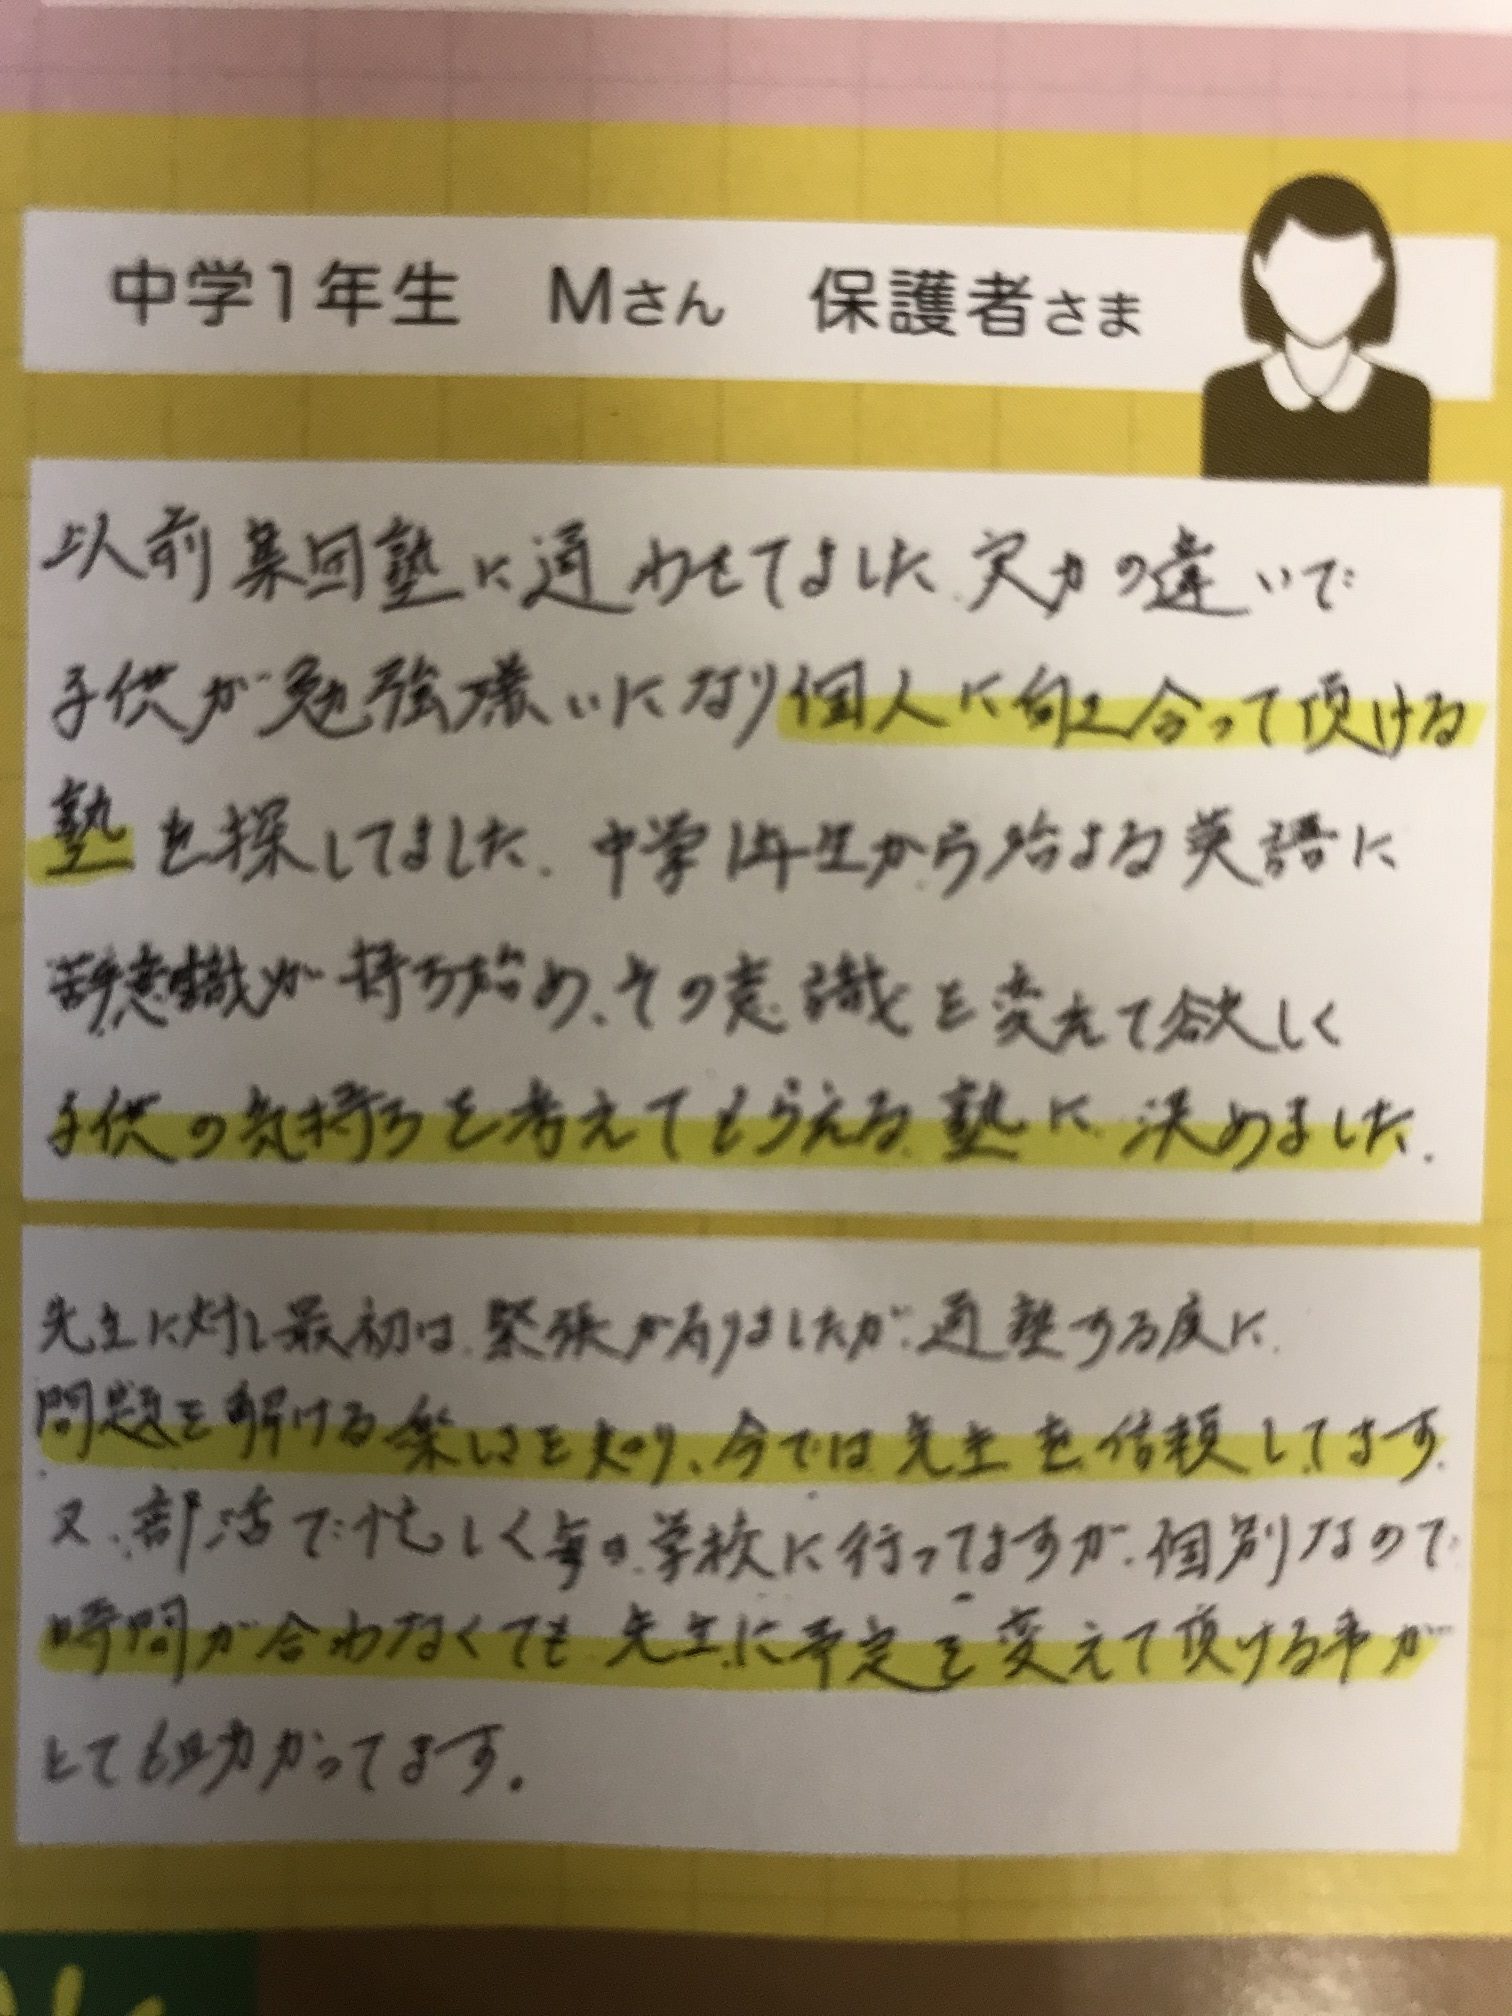 中学1年生 Mさん 保護者さま
以前集団塾に通わせてました.実力の違いで
子供が勉強嫌いになり個人に向き合って頂ける
塾を探してました.中学1年生から始まる英語に
苦手意識が持ち始め、その意識を変えて欲しく
子供の気持ちを考えてもらえる塾に決めました.
先生に対し最初は緊張が有りましたが通塾する度に
問題を解ける楽しさを知り、今では先生を信頼してます.
又、部活で忙しく毎日学校に行ってますが、個別なので
時間が合わなくても先生に予定を変えて頂ける事が
とても助かってます.